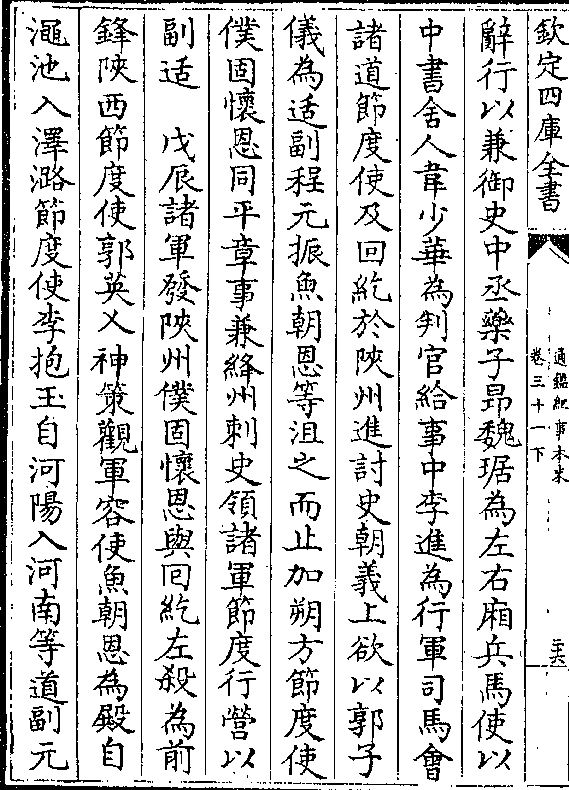 欽定四庫全書
通鑑紀事本末
卷三十一下
二六
辭行以兼御史中丞藥子昻魏琚為左右廂兵馬使以
中書舍人韋少華為判官給事中李進為行軍司馬會
諸道節度使及回紇於陜州進討史朝義上欲以郭子
儀為适副程元振魚朝恩等沮之而止加朔方節度使
僕固懷恩同平章事兼絳州刺史領諸軍節度行營以
副适　戊辰諸軍發陜州僕固懷恩與回紇左殺為前
鋒陜西節度使郭英乂神策觀軍容使魚朝恩為殿自
澠池入澤潞節度使李抱玉自河陽入河南等道副元